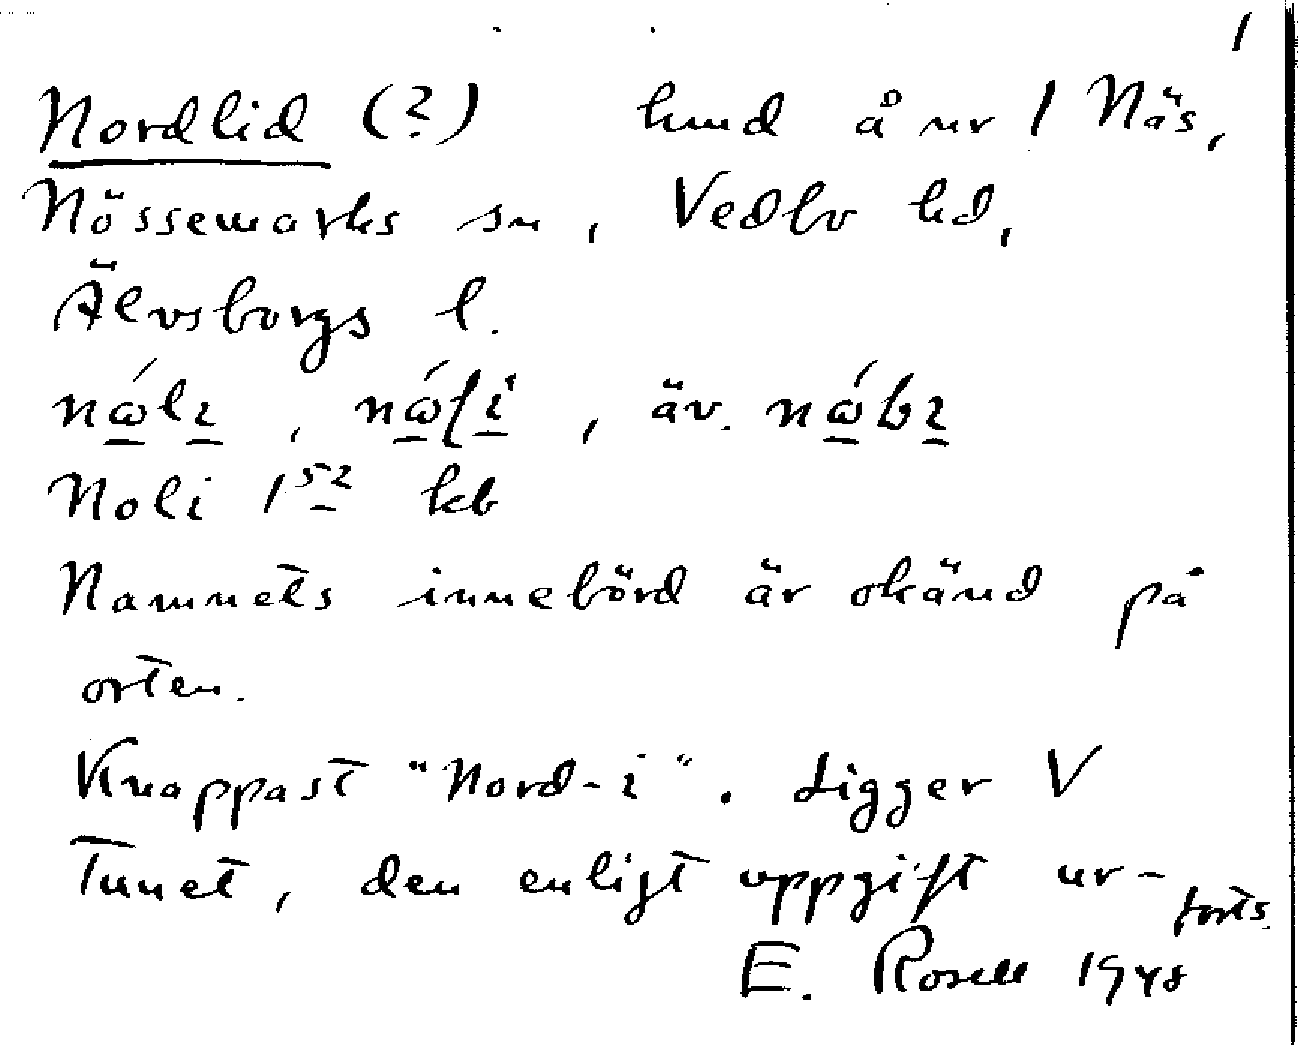 1
Nordlid (?) lund å nr 1 Näs,
Nössemarks sn, Vedbo hd,
Älvsborgs l.
nǿlı, äv.
Noli 1⁵² kb
Namnets innebörd är okänd på
orten.
Knappast "Nord-i". Ligger V
Tunet, den enligt uppgift ur-
forts.
E. Rosell 1948